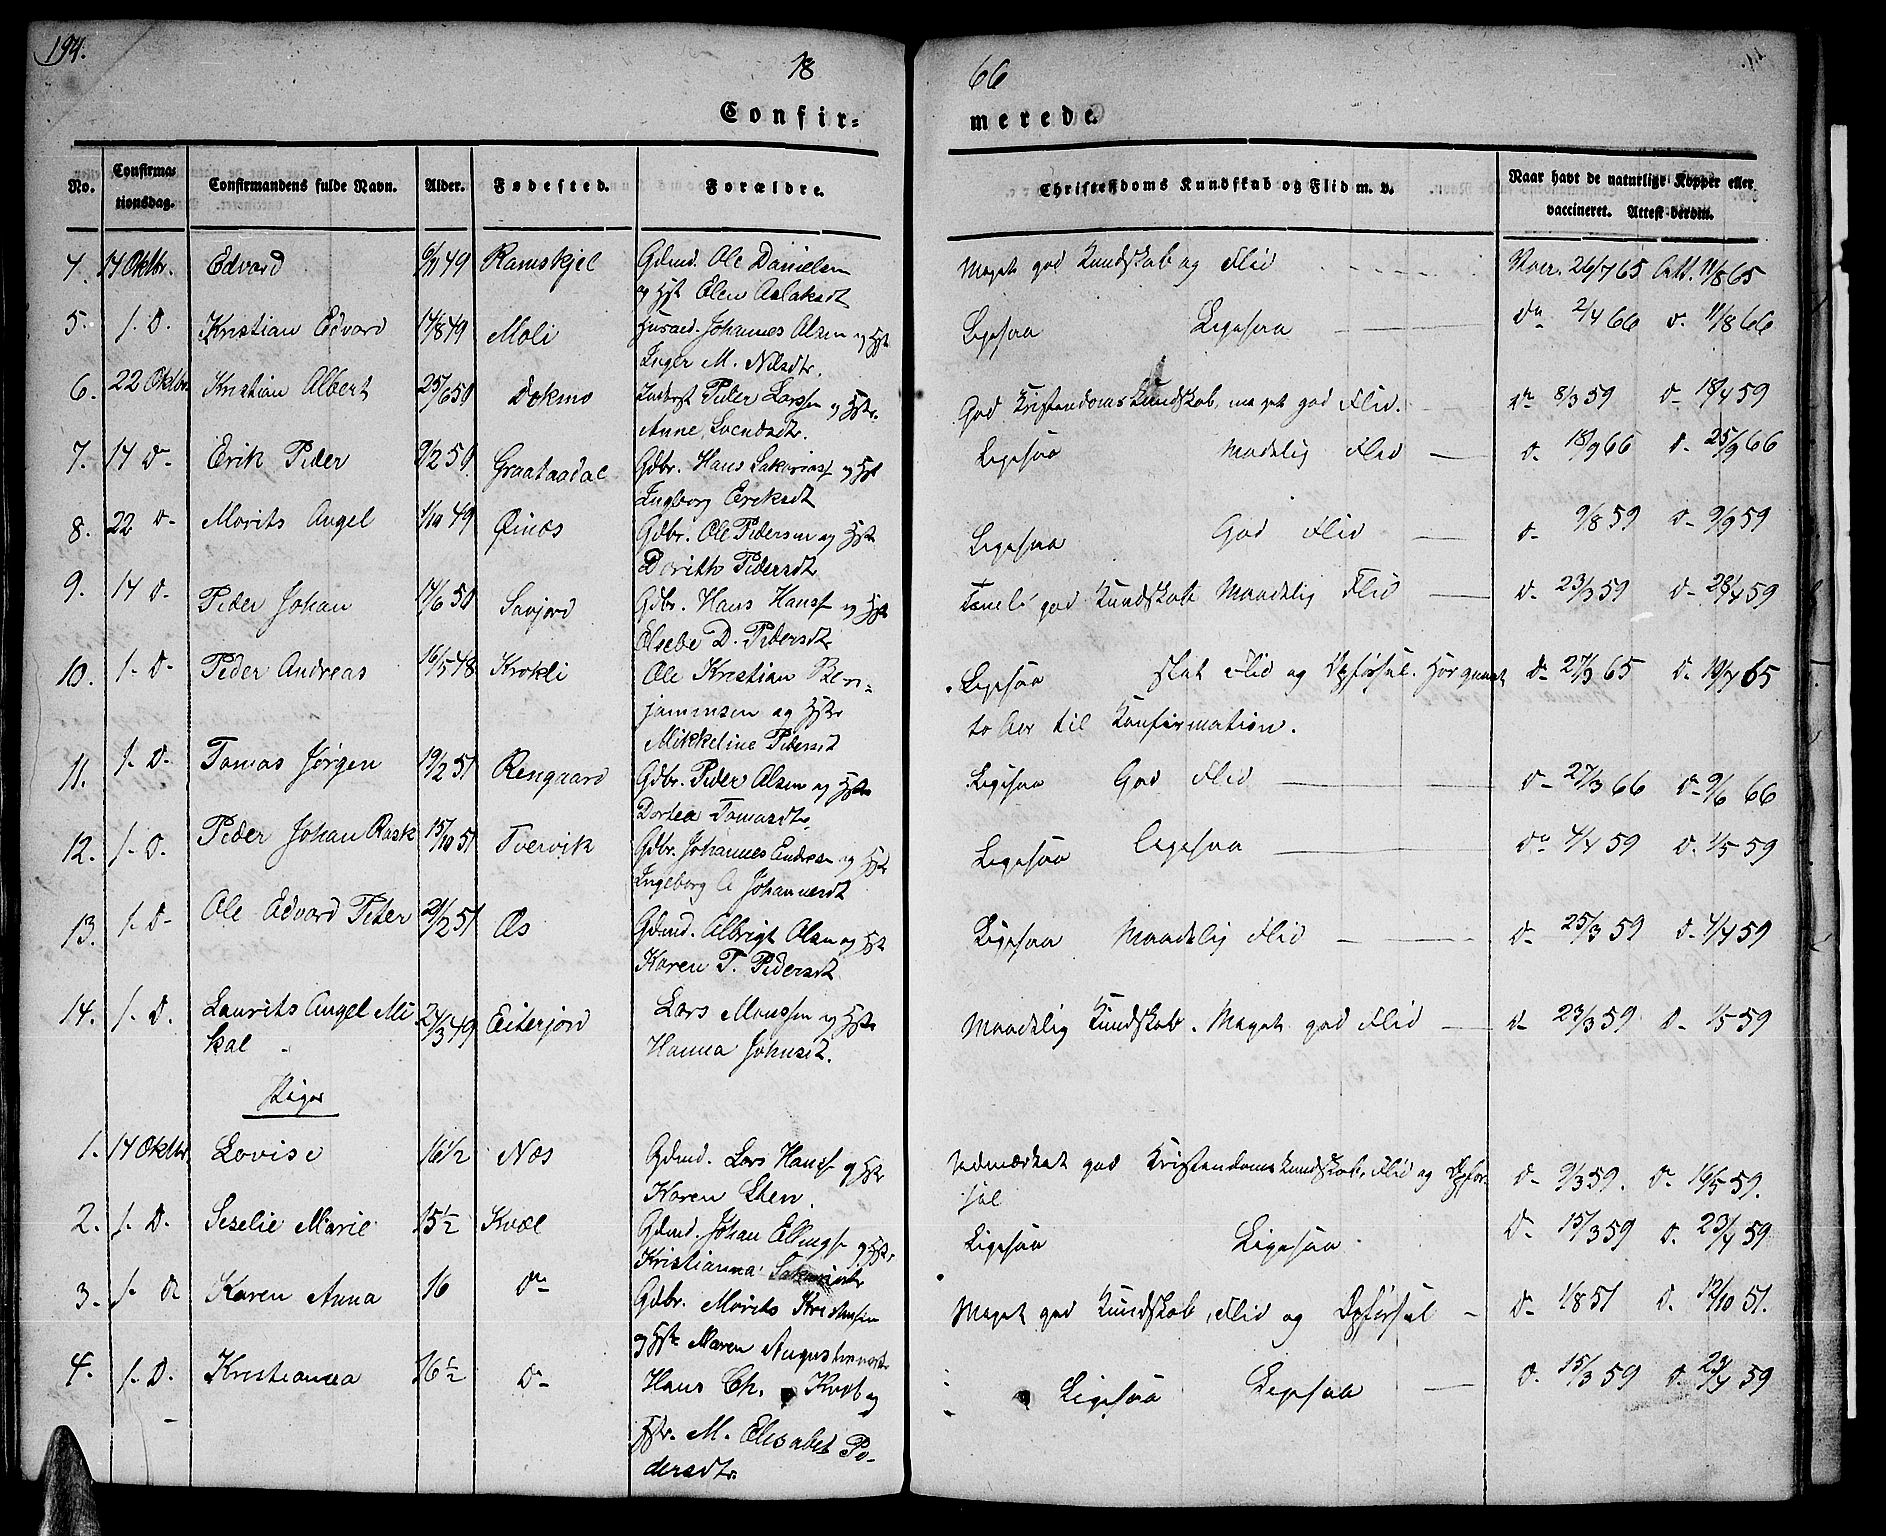 194.
18
66
Confir=
merede.
No.
Confirma=
tionsdag.
Confirmandens fulde Navn.
Alder.
Fødested.
Forældre.
Christendoms Kundskab og Flid m. v.
Naar havt de naturlige Kopper eller
vaccineret. Attest derom.
4. 14 Oktbr. Edvard 49 Ramskjel Gdmd. Ole Danielsen Meget god Kundskab og Flid Vacc. 26/7 65 Att. 11/8 65
og Hst Elen Aslaksdt
5. s. D. Kristian Edvard 14/8 49 Moli Husmd. Johannes Olsen og Hst Ligesaa Ligesaa do 2/4 66 d. 11/8 66
Inger M. Nilsdtr.
6. 22 Oktbr. Kristian Albert 25/6 50 Dokmo Inderst Peder Larssen og Hstr. God Kristendomskundskab, meget god Flid. do 8/3 59 d- 18/4 59
Anne Svendsdtr.
7. 14 D- Erik Peder 9/2 50 Graataadal Gdbr. Hans Sakariass og Hst Ligesaa Maadelig Flid d- 18/9 66 d. 25/9 66
Ingborg Eriksdt
8. 22 D- Morits Angel 1/10 49 Øinæs Gdbr. Ole Pedersen og Hst. Ligesaa God Flid d- 9/8 59 d- 9/9 59
Dorith Pedersdt
9. 14 D- Peder Johan 17/6 50 Savjord Gdbr. Hans Hanss og Hst Temel. god Kundskab Maadelig Flid d- 23/3 59 d- 23/4 59
Elsebe D. Pedersdt.
10. s. D- Peder Andreas 16/5 48 Krokli Ole Kristian Ben- Ligesaa slet Flid og Opførsel. Har gaaet d- 27/3 65 d. 65
jaminsen og Hstr to Aar til Konfirmation.
Mikkeline Pedersdt
11. s. D- Tomas Jørgen 19/2 51 Rengaard Gdbr. Peder Olsen og Hst. Ligesaa God Flid d- 27/3 66 d- 9/6 66
Dortea Tomasdtr.
12. s. D. Peder Johan Rask 15/10 51 Tvervik Gdbr. Johannes Enders og Hst Ligesaa Ligesaa do 4/4 59 d. 1/5 59
Ingeborg A Johannesdt
13. s. D- Ole Edvard Peter 21/2 51 Æs Gdmd. Albrigt Olsen og Hst Ligesaa Maadelig Flid d- 25/3 59 d- 4/4 59
Karen T. Pedersdt
14. s. D. Laurits Angel Mi 24/3 49 Eiterjord Lars Monssen og Hst. Maadelig Kundskab. Meget god Flid d- 23/3 59 d- 1/5 59
kal Hanna Johnsdt.
Piger
1. 14 Oktbr. Lovise 16½ Næs Gdmd. Lars Hanss og Hst Udmærket god Kristendomskundskab, Flid og Opfør- d- 9/3 59. do 16/5 59.
Karen Sten. sel
2. s. D. Seselie Marie 15½ Kvæl Gdmd. Johan Ellingss og Hst. Ligesaa Ligesaa d- 15/3 59 d. 23/4 59
Kristianna
3. s. D Karen Anna 16 do Gdbr. Morits Kristensen Meget god Kundskab, Flid og Opførsel d- 1/8 51 d. 12/10 51.
og Hst Maren
4. s. D. Kristianna 16½ D- Hans Ch. og Ligesaa Ligesaa d. 15/3 59 d. 23/4 59
Hstr. M. Elisabet Pe-
dersdtr.